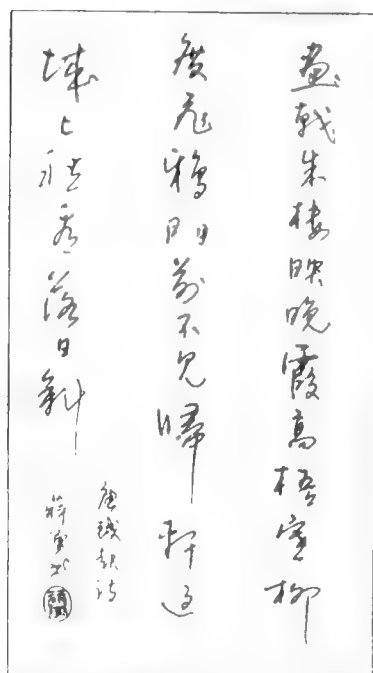 畫戟朱樓映晚霞高梧寒柳
度飛鴉門前不見歸軒過
城上愁看落日斜
唐錢起詩
書